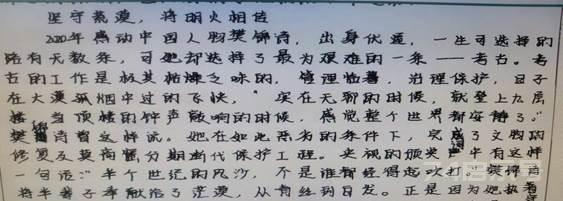 坚守荒漠，将明火相传
2020年感动中国人物樊锦诗，出身优渥，一生可选择的
路有无数条，可她却选择了最为艰难的一条——考古。考
古的工作是极其枯燥乏味的，管理，治理保护，日子
在大漠孤烟中过的飞快，实在无聊的时候，就登上九层
楼，当顶楼的钟声敲响的时候，感觉整个世界都安静了。”
樊锦诗曾这样说。她在如此恶劣的条件下，完成了文物的
修复及莫高窟分期断代保护工程。央视的颁奖词中有这样
一句话：“半个世纪的风沙，不是谁都经得起吹打”樊锦诗
将半辈子奉献给了荒漠，从青丝到白发。正是因为她执着